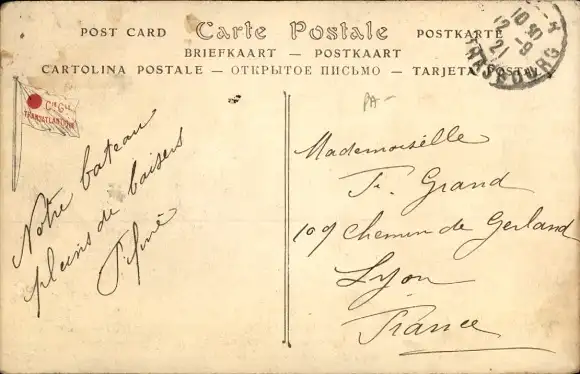 POST CARD Carte Postale POSTKARTE
BRIEFKAART — POSTKAART
CARTOLINA POSTALE — ОТКРЫТОЕ ПИСЬМО — TARJETA POSTAL
10 30
12 - 9
21
STRASBOURG
Cie Gle
TRANSATLANTIQUE
PA-
Notre bateau
pleins de baisers
Mademoiselle
F. Grand
109 Chemin de Gerland
Lyon
France